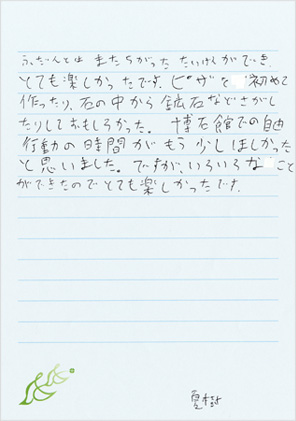 ふだんとは またちがった たいけんができ、
とても楽しかったです。ピザを 初めて
作ったり、石の中から鉱石などさがし
たりしておもしろかった。 博石館での自由
行動の時間がもう少しほしかった
と思いました。ですが、いろいろなこと
ができたのでとても楽しかったです。
夏樹